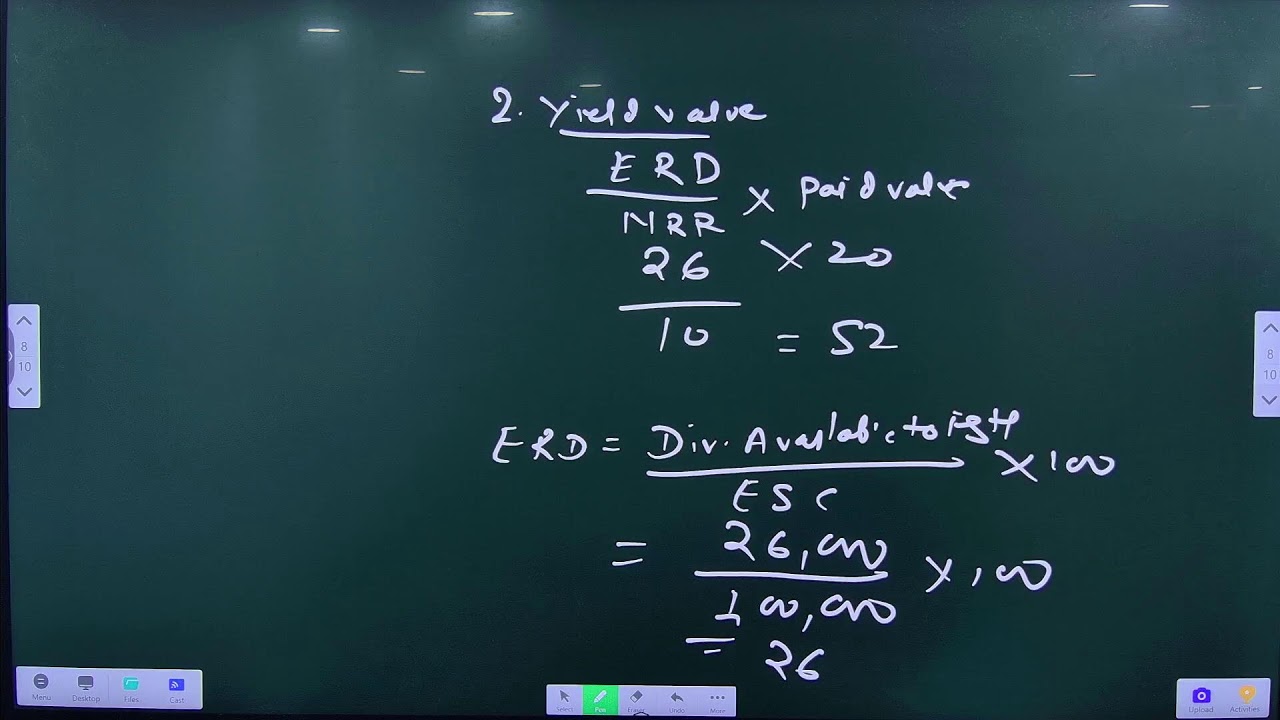 2. Yield value
ERD
NRR
× Paid value
26
× 20
10
= 52
ERD = Div. Available to
× 100
ESC
= 26,000
× 100
100,000
= 26
8
10
8
10
Menu
Desktop
Files
Cast
Select
Pen
Eraser
Undo
More
Upload
Activities